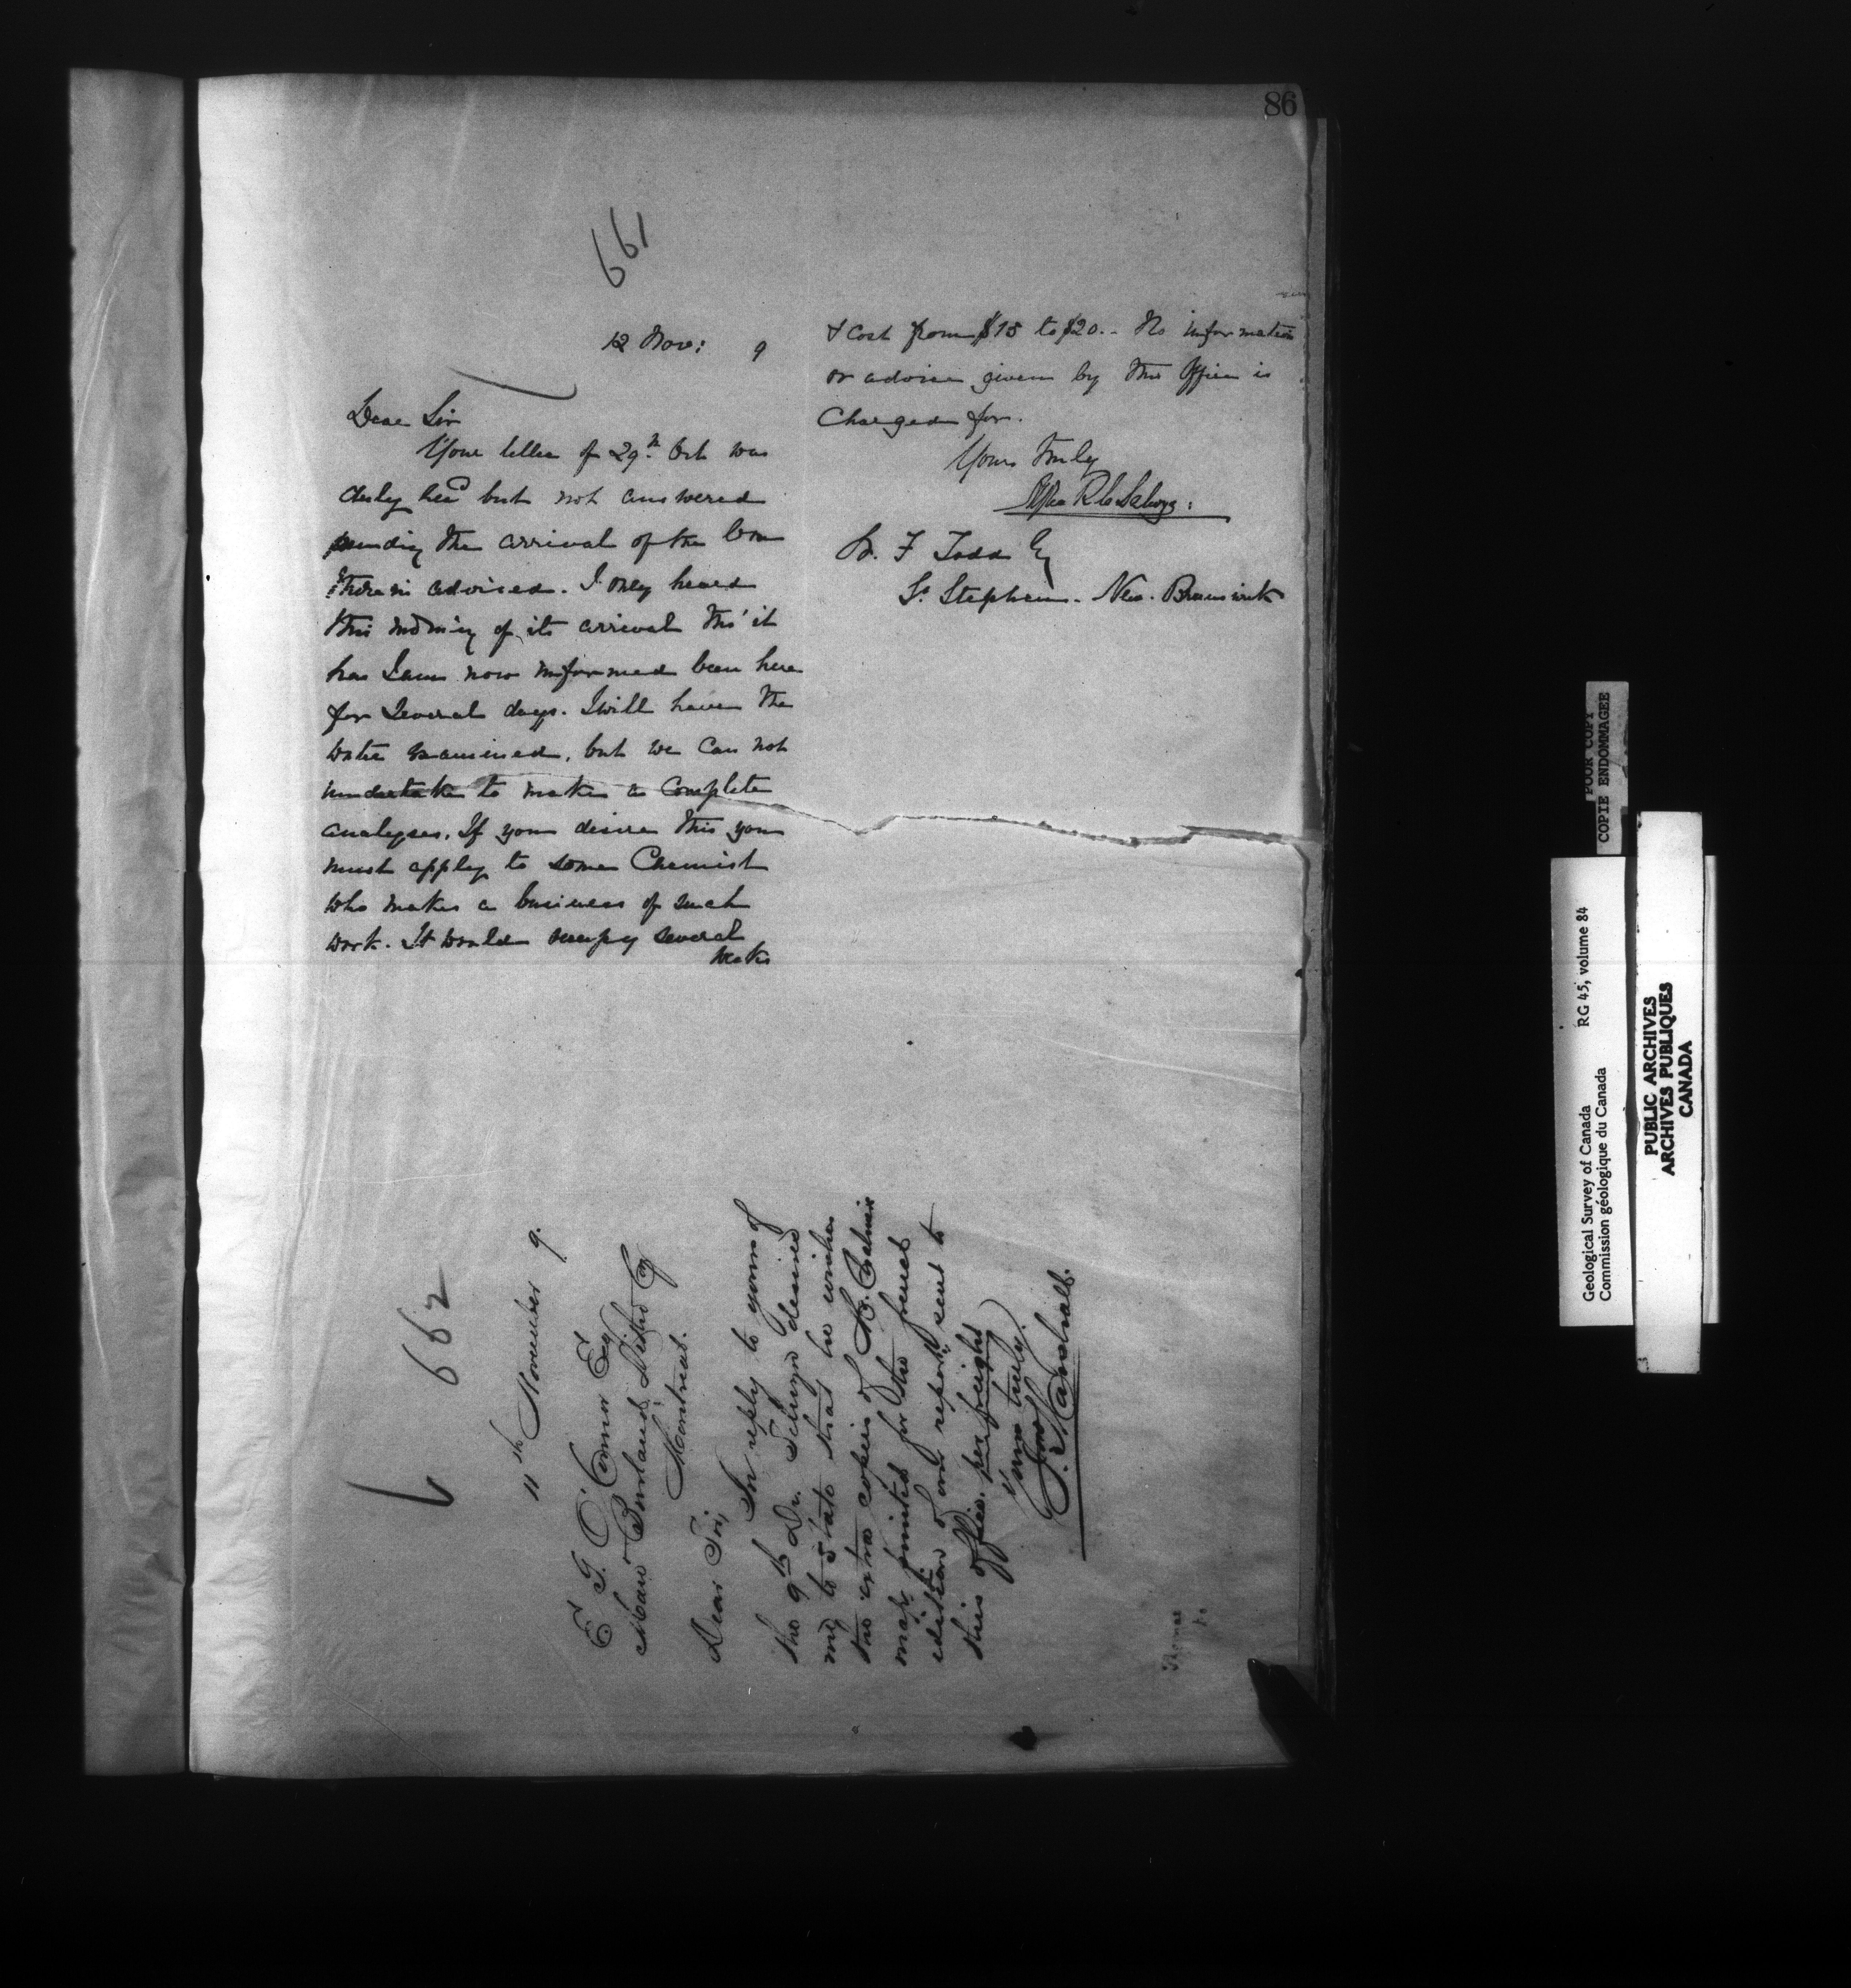 86
661
12 Nov: 9
Dear Sir
Your letter of 29th Oct was
duly recd but not answered
pending the arrival of the box
therein advised. I only heard
this morning of its arrival tho' it
has I am now informed been here
for several days. I will have the
water examined, but we can not
undertake to make a complete
analyses. If you desire this you
must apply to some Chemist
who makes a business of such
work. It would occupy several
weeks
& cost from $15 to $20.- No information
or advice given by this Office is
charged for.
Yours truly
Alfred R C Selwyn
F Todd Esq
St. Stephens. New. Brunswick
662
11th November 9.
E G. O'Connor Esq
Burland Litho Coy
Montreal.
Dear Sir,
In reply to yours of
the 9th Dr. Selwyn desired
me to state that he wishes
the extra copies of
map printed for the french
edition of our report, sent to
this office, per freight
Yours truly.
Jno Marshall.
POOR COPY
COPIE ENDOMMAGEE
Geological Survey of Canada RG 45, volume 84
Commission géologique du Canada
PUBLIC ARCHIVES
ARCHIVES PUBLIQUES
CANADA
3